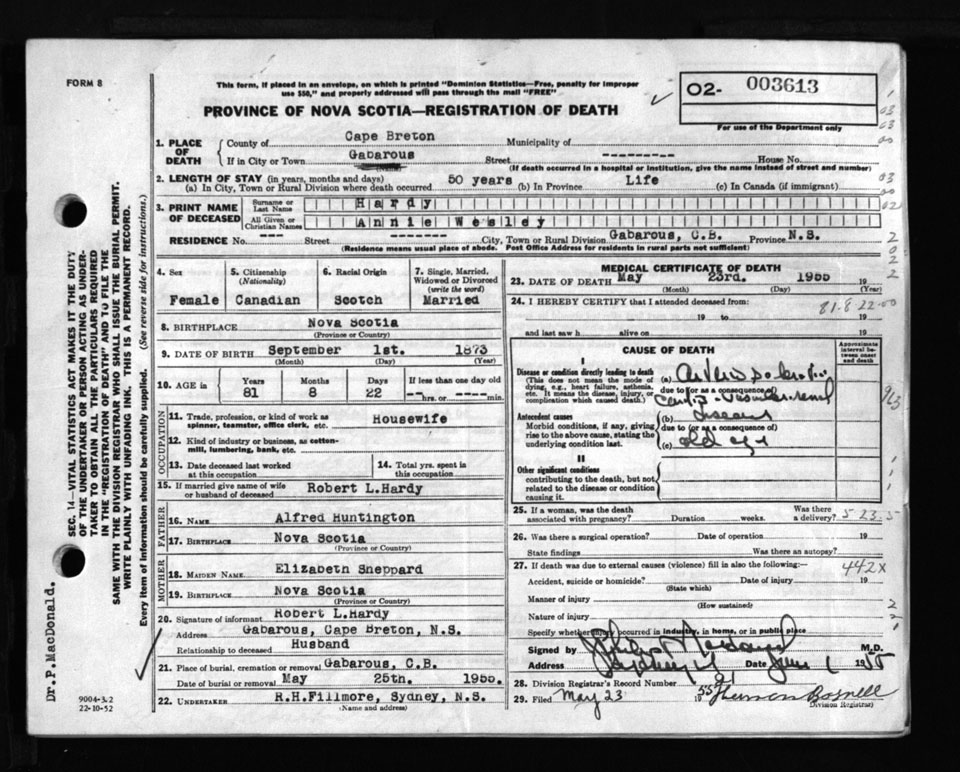 FORM 8
This form, if placed in an envelope, on which is printed "Dominion Statistics—Free, penalty for improper
use $50," and properly addressed will pass through the mail "FREE"
PROVINCE OF NOVA SCOTIA—REGISTRATION OF DEATH
O2- 003613
For use of the Department only
1. PLACE OF DEATH
County of Cape Breton Municipality of
If in City or Town Gabarous Street --------- House No.
(Name) (If death occurred in a hospital or institution, give the name instead of street and number)
2. LENGTH OF STAY (in years, months and days)
(a) In City, Town or Rural Division where death occurred 50 years (b) In Province Life (c) In Canada (if immigrant)
3. PRINT NAME OF DECEASED
Surname or Last Name Hardy
All Given or Christian Names Annie Wesley
RESIDENCE No. --- Street ------- City, Town or Rural Division Gabarous, C.B. Province N.S.
(Residence means usual place of abode. Post Office Address for residents in rural parts not sufficient)
4. Sex
Female
5. Citizenship
(Nationality)
Canadian
6. Racial Origin
Scotch
7. Single, Married, Widowed or Divorced
(write the word)
Married
8. BIRTHPLACE Nova Scotia
(Province or Country)
9. DATE OF BIRTH September 1st. 1873
(Month) (Day) (Year)
10. AGE in
Years Months Days If less than one day old
81 8 22 -- hrs. or -- min.
OCCUPATION
11. Trade, profession, or kind of work as
spinner, teamster, office clerk, etc. Housewife
12. Kind of industry or business, as cotton-
mill, lumbering, bank, etc.
13. Date deceased last worked
at this occupation
14. Total yrs. spent in
this occupation
15. If married give name of wife
or husband of deceased Robert L.Hardy
FATHER
16. NAME Alfred Huntington
17. BIRTHPLACE Nova Scotia
(Province or Country)
MOTHER
18. MAIDEN NAME Elizabeth Sheppard
19. BIRTHPLACE Nova Scotia
(Province or Country)
20. Signature of informant Robert L.Hardy
Address Gabarous, Cape Breton, N.S.
Relationship to deceased Husband
21. Place of burial, cremation or removal Gabarous, C.B.
Date of burial or removal May 25th. 1955.
22. UNDERTAKER R.H.Fillmore, Sydney, N.S.
(Name and address)
MEDICAL CERTIFICATE OF DEATH
23. DATE OF DEATH May 23rd. 1955
(Month) (Day) (Year)
24. I HEREBY CERTIFY that I attended deceased from:
81-8-22-00
19 to 19
and last saw h alive on 19
CAUSE OF DEATH
Approximate interval between onset and death
I
Disease or condition directly leading to death
(This does not mean the mode of
dying, e.g., heart failure, asthenia,
etc. It means the disease, injury, or
complication which caused death.)
(a)
due to (or as a consequence of)
Antecedent causes
Morbid conditions, if any, giving
rise to the above cause, stating the
underlying condition last.
(b) disease
due to (or as a consequence of)
(c) old age
II
Other significant conditions
contributing to the death, but not
related to the disease or condition
causing it.
25. If a woman, was the death
associated with pregnancy? Duration weeks. Was there a delivery?
26. Was there a surgical operation? Date of operation 19
State findings Was there an autopsy?
27. If death was due to external causes (violence) fill in also the following:—
442X
Accident, suicide or homicide? Date of injury 19
(State which)
Manner of injury
(How sustained)
Nature of injury
Specify whether injury occurred in industry, in home, or in public place
Signed by M.D.
Address Date June 1 1955
28. Division Registrar's Record Number 21
29. Filed May 23 1955
Division Registrar
SEC. 14—VITAL STATISTICS ACT MAKES IT THE DUTY
OF THE UNDERTAKER OR PERSON ACTING AS UNDER-
TAKER TO OBTAIN ALL THE PARTICULARS REQUIRED
IN THE "REGISTRATION OF DEATH" AND TO FILE THE
SAME WITH THE DIVISION REGISTRAR WHO SHALL ISSUE THE BURIAL PERMIT.
WRITE PLAINLY WITH UNFADING INK. THIS IS A PERMANENT RECORD.
Every item of information should be carefully supplied. (See reverse side for instructions.)
Dr.P.MacDonald.
9004-3.2
22-10-52